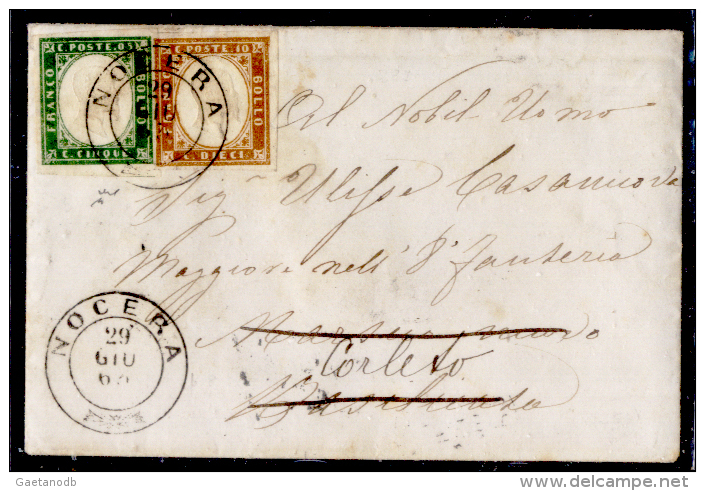 C. POSTE. 05
FRANCO BOLLO
C. CINQUE
C. POSTE. 10
BOLLO
C. DIECI
NOCERA
29
GIU
Al Nobil Uomo
Sig. Ulisse Casanuova
Maggiore nell' 8° Fanteria
Corleto
NOCERA
29
GIU
Gaetanodb
delcampe.net